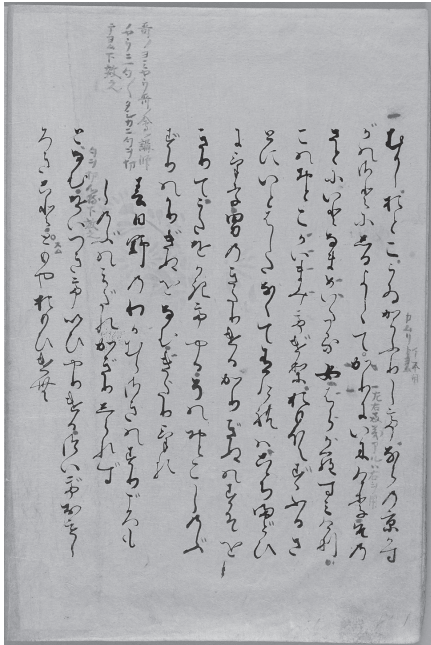 一むかしおとこうゐかうふりしてならの京かす
がのさとにしるよしゝてかりにいにけりその
さとにいとなまめいたる女はらからすみけり
このおとこかいまみてけりおもほえずふるさ
とにいとはしたなくてありけれは心ちまどひ
にけり男のきたりけるかりぎぬのすそを
きりてうたをかきてやるそのおとこしのぶ
ずりのかりぎぬをなむきたりける
春日野のわかむらさきのすりごろも
しのぶのみだれかぎりしられず
となむをいつきていひやりけるついでおもし
ろきことゞもやおもひけむ